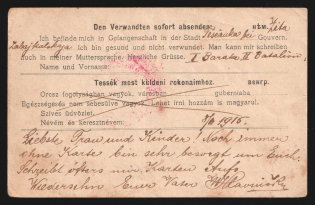 Den Verwandten sofort absenden:
Ich befinde mich in Gefangenschaft in der Stadt Gouvern.
Ich bin gesund und nicht verwundet. Man kann mir schreiben
auch in meiner Muttersprache. Herzliche Grüsse.
Name und Vorname:
Tessék most küldeni rokonaimhoz.
Orosz fogolyságban vagyok, városban guberniaba
Egészségesés nem sebesülve vagyok. Lehet irni hozzám is magyarul.
Szives üdvözlet.
Névém és keresztnévem:
Liebste Frau und Kinder! Noch immer
ohne Karte bin sehr besorgt um Euch.
Schreibt öfters mir Karten Aufs
Wiedersehn Euer Vater